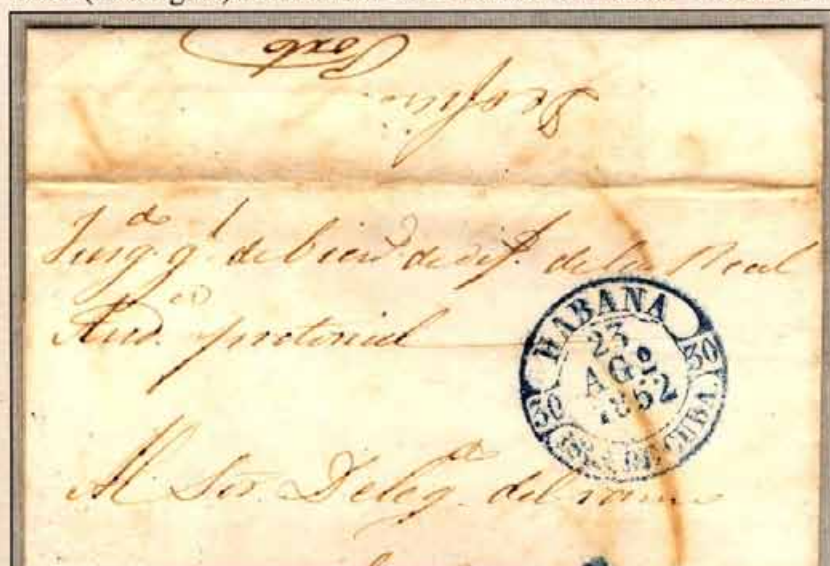 De oficio
Juzg.do g.l de bien.s de dif.s de la Real
Aud.cia pretorial
HABANA
23
AGO
1852
30
30
ISLA DE CUBA
Al Sor. Deleg.do del ramo